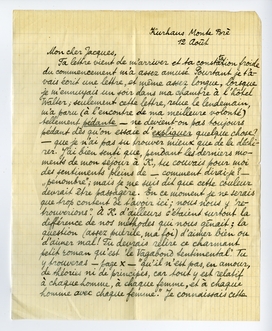 Kurhaus Monte Brè
12 Août
Mon cher Jacques,
Ta lettre vient de m'arriver et ta constation froide
du commencement m'a assez amusé. Pourtant je t'a-
vais écrit une lettre, et même assez longue, lorsque
je m'ennuyais un soir dans ma chambre à l'hôtel
Walter; seulement cette lettre, relue le lendemain,
m'a paru (à l'encontre de ma meilleure volonté)
tellement pédante — ne devient on pas toujours
pédant dès qu'on essaie d'expliquer quelque chose?
— que je n'ai pas su trouver mieux que de la déchi-
rer. J'ai bien senti que, pendant les derniers mo-
ments de mon séjour à K, tu couvais pour moi
des sentiments pleins de — comment dirai-je? —
"pénombre"; mais je me suis dit que cette couleur
devrait être partagée. En ce moment je ne serais
que trop content de t'avoir ici; nous nous y "re-
trouverions". À K d'ailleurs c'étaient surtout la
différence de nos méthodes qui nous gênait; la
question (assez puérile, ma foi) d'aimer bien ou
d'aimer mal! Tu devrais relire ce charmant
petit roman qu'est "le Vagabond Sentimental". Tu
y trouveras — page x — "qu'il n'est pas, en amour,
de théories ni de principes, car tout y est relatif
à chaque homme, à chaque femme, et à chaque
homme avec chaque femme." Je connaissais cette